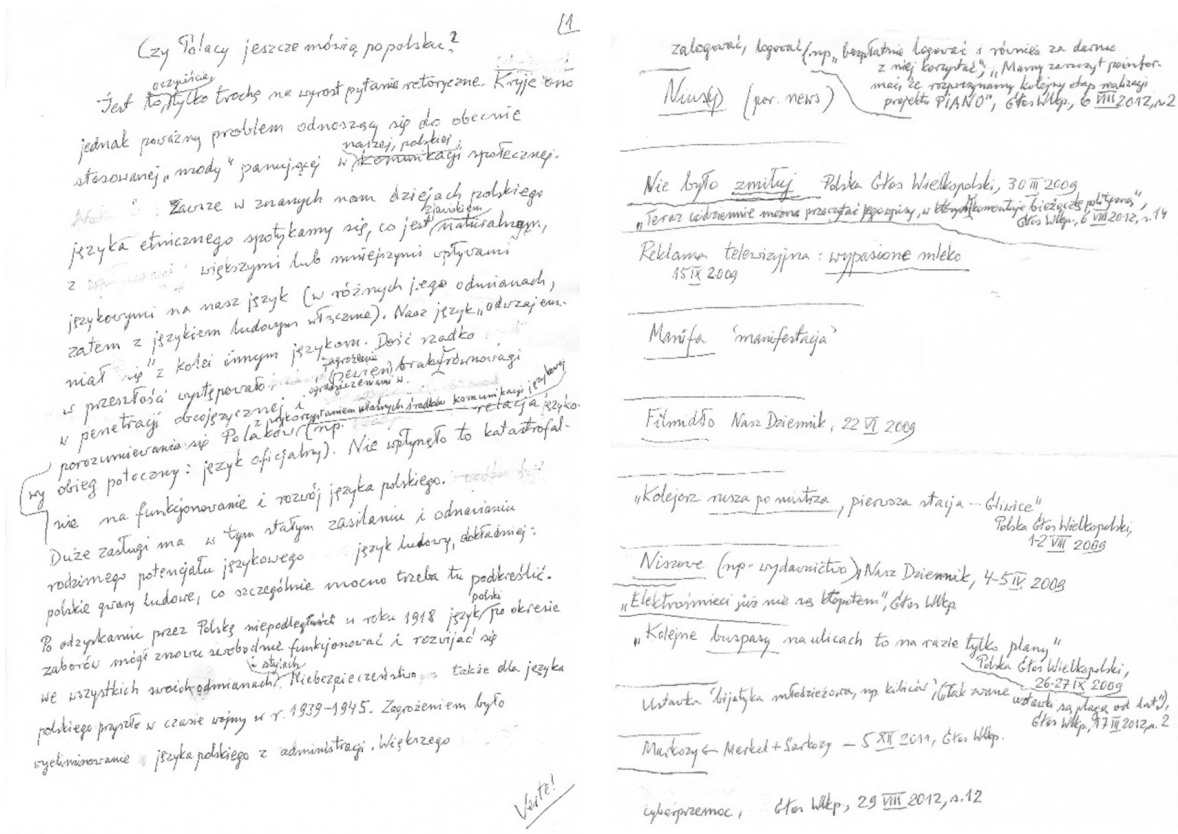 1
Czy Polacy jeszcze mówią po polsku?
oczywiście
Jest to, tylko trochę na wyrost pytanie retoryczne. Kryje ono
jednak poważny problem odnoszący się do obecnie
stosowanej „mody" panującej w naszej, polskiej, komunikacji społecznej.
Zawsze w znanych nam dziejach polskiego
języka etnicznego spotykamy się, co jest zjawiskiem naturalnym,
z większymi lub mniejszymi wpływami
językowymi na nasz język (w różnych jego odmianach,
zatem z językiem ludowym włącznie). Nasz język „odwzajem-
niał się" z kolei innym językom. Dość rzadko
w przeszłości występowało zagrożenie i (pewien) brak równowagi
w penetracji obcojęzycznej i ograniczeniami w
z wykorzystaniem własnych środków komunikacji językowej
porozumiewania się Polaków (np. relacja języko-
wy obieg potoczny: język oficjalny). Nie wpłynęło to katastrofal-
nie na funkcjonowanie i rozwój języka polskiego.
Duże zasługi ma w tym stałym zasilaniu i odnawianiu
rodzimego potencjału językowego język ludowy, dokładniej:
polskie gwary ludowe, co szczególnie mocno trzeba tu podkreślić.
Po odzyskaniu przez Polskę niepodległości w roku 1918 język polski po okresie
zaborów mógł znowu swobodnie funkcjonować i rozwijać się
we wszystkich swoich odmianach i stylach. Niebezpieczeństwo także dla języka
polskiego przyszło w czasie wojny w r. 1939-1945. Zagrożeniem było
wyeliminowanie języka polskiego z administracji. Większego
Verte!
zalogować, logować (np. „bezpłatnie logować i również za darmo
z niej korzystać", „Mamy zaszczyt poinfor-
mować, że rozpoczynamy kolejny etap realizacji
projektu PIANO", Głos Wlkp, 6 VIII 2012, s. 2
Niusy (por. news)
Nie było zmiłuj Polska Głos Wielkopolski, 30 III 2009
„Teraz codziennie można przeczytać jego wpisy, w których komentuje bieżączkę polityczną",
Głos Wlkp, 6 VIII 2012, s. 14
Reklama telewizyjna: wypasione mleko
15 IX 2009
Manifa 'manifestacja'
Filmidło Nasz Dziennik, 22 VI 2009
„Kolejorz rusza po mistrza, pierwsza stacja – Gliwice"
Polska Głos Wielkopolski,
1-2 VIII 2009
Niszowe (np. wydawnictwo), Nasz Dziennik, 4-5 IV 2009
„Elektrośmieci już nie są kłopotem", Głos Wlkp
„Kolejne buspasy na ulicach to na razie tylko plany"
Polska Głos Wielkopolski,
26-27 IX 2009
Ustawka 'bijatyka młodzieżowa, np. kibiców' („tak zwane
ustawki są plagą od lat"),
Głos Wlkp, 17 III 2012, s. 2
Markozy ← Merkel + Sarkozy – 5 XII 2011, Głos Wlkp.
cyberprzemoc, Głos Wlkp, 29 VIII 2012, s. 12